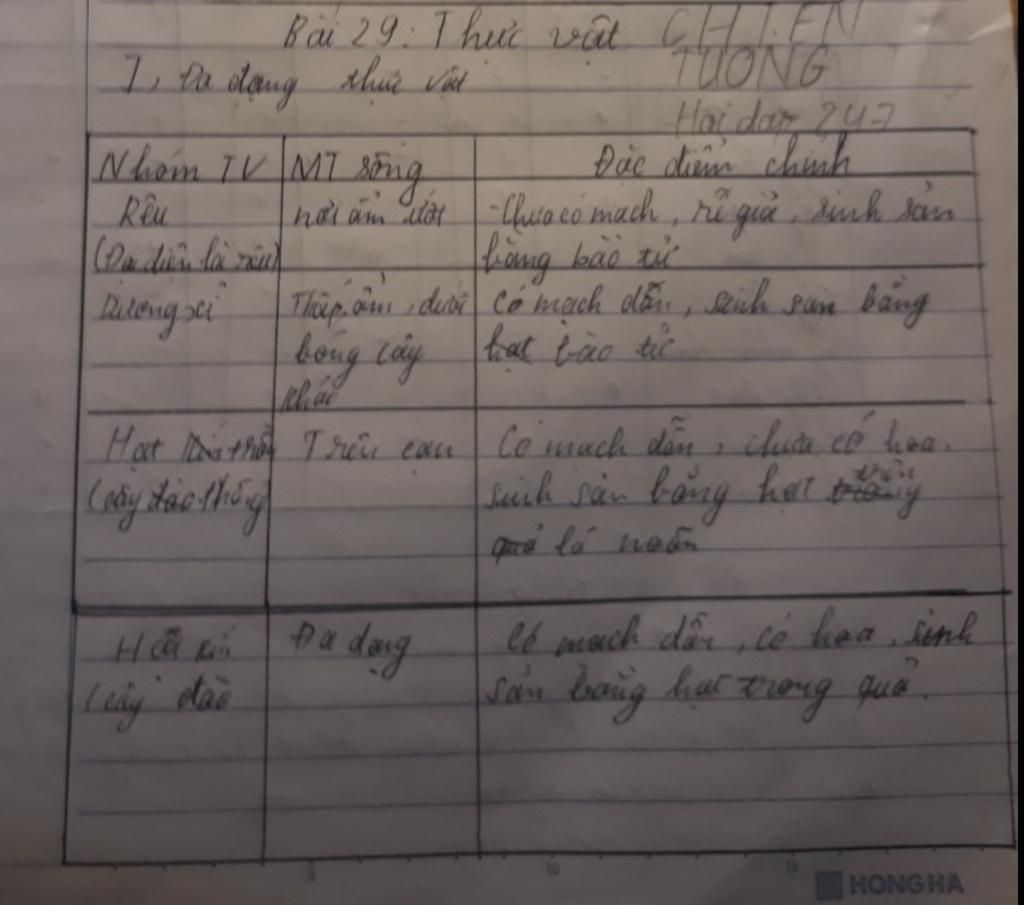 Bài 29: Thực vật
CHIEN
TUONG
Hoi dap 247
I, Đa dạng thực vật
Nhóm TV
MT sống
Đặc điểm chính
Rêu
(Đại diện là rêu)
nơi ẩm ướt
-Chưa có mạch, rễ giả, sinh sản
bằng bào tử
Dương xỉ
Thấp, ẩm, dưới
bóng cây
khác
Có mạch dẫn, sinh sản bằng
hạt bào tử
Hạt trần
(cây thông)
Trên cạn
Có mạch dẫn, chưa có hoa,
sinh sản bằng hạt trên
quả lá noãn
kín
(cây đào
Đa dạng
Có mạch dẫn, có hoa, sinh
sản bằng hạt trong quả.
HONG HA